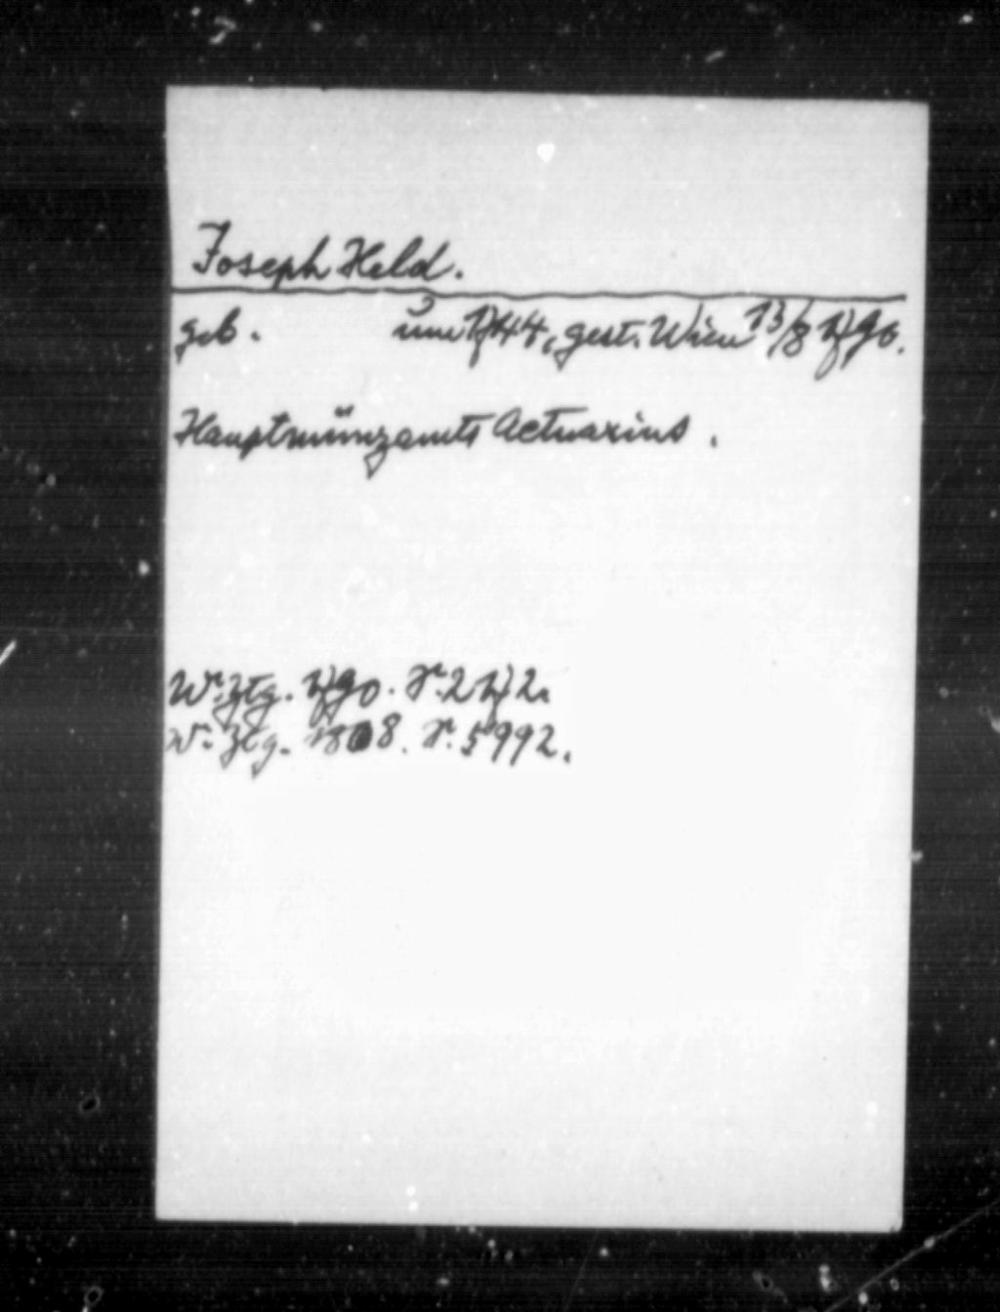 Joseph Held.
geb. um 1744, gest. Wien 13/8 1790.
Hauptmünzamts Actuarius.
W. Ztg. 1790. S. 2172.
W. Ztg. 1808. S. 5992.